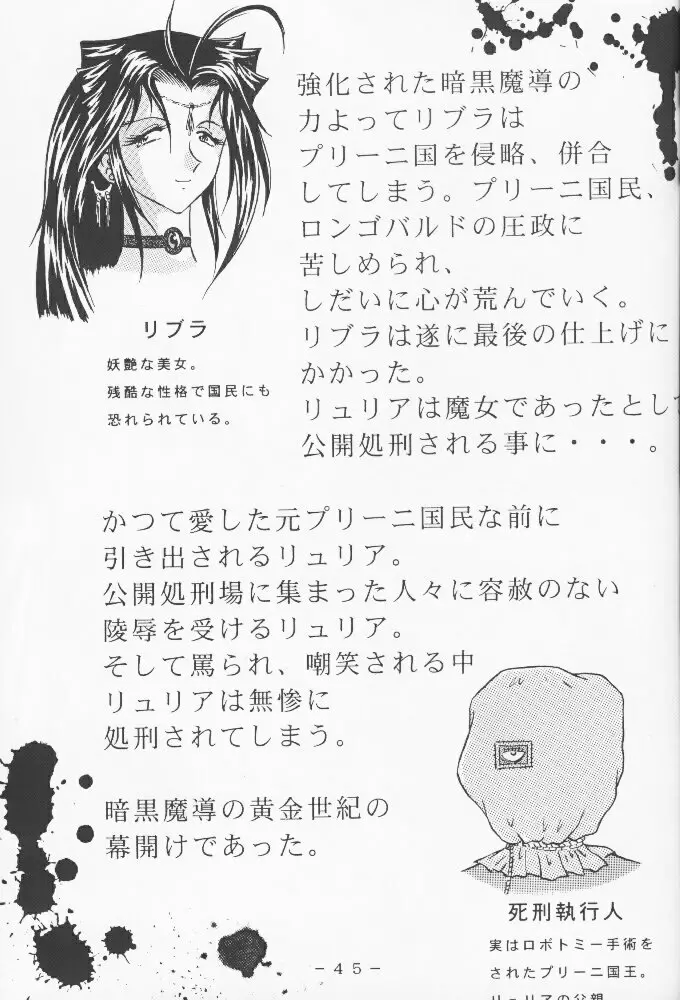 強化された暗黒魔導の
力よってリブラは
プリーニ国を侵略、併合
してしまう。プリーニ国民、
ロンゴバルドの圧政に
苦しめられ、
しだいに心が荒んでいく。
リブラは遂に最後の仕上げに
かかった。
リュリアは魔女であったとして
公開処刑される事に・・・。
リブラ
妖艶な美女。
残酷な性格で国民にも
恐れられている。
かつて愛した元プリーニ国民な前に
引き出されるリュリア。
公開処刑場に集まった人々に容赦のない
陵辱を受けるリュリア。
そして罵られ、嘲笑される中
リュリアは無惨に
処刑されてしまう。
暗黒魔導の黄金世紀の
幕開けであった。
死刑執行人
実はロボトミー手術を
されたプリーニ国王。
リュリアの父親
-45-